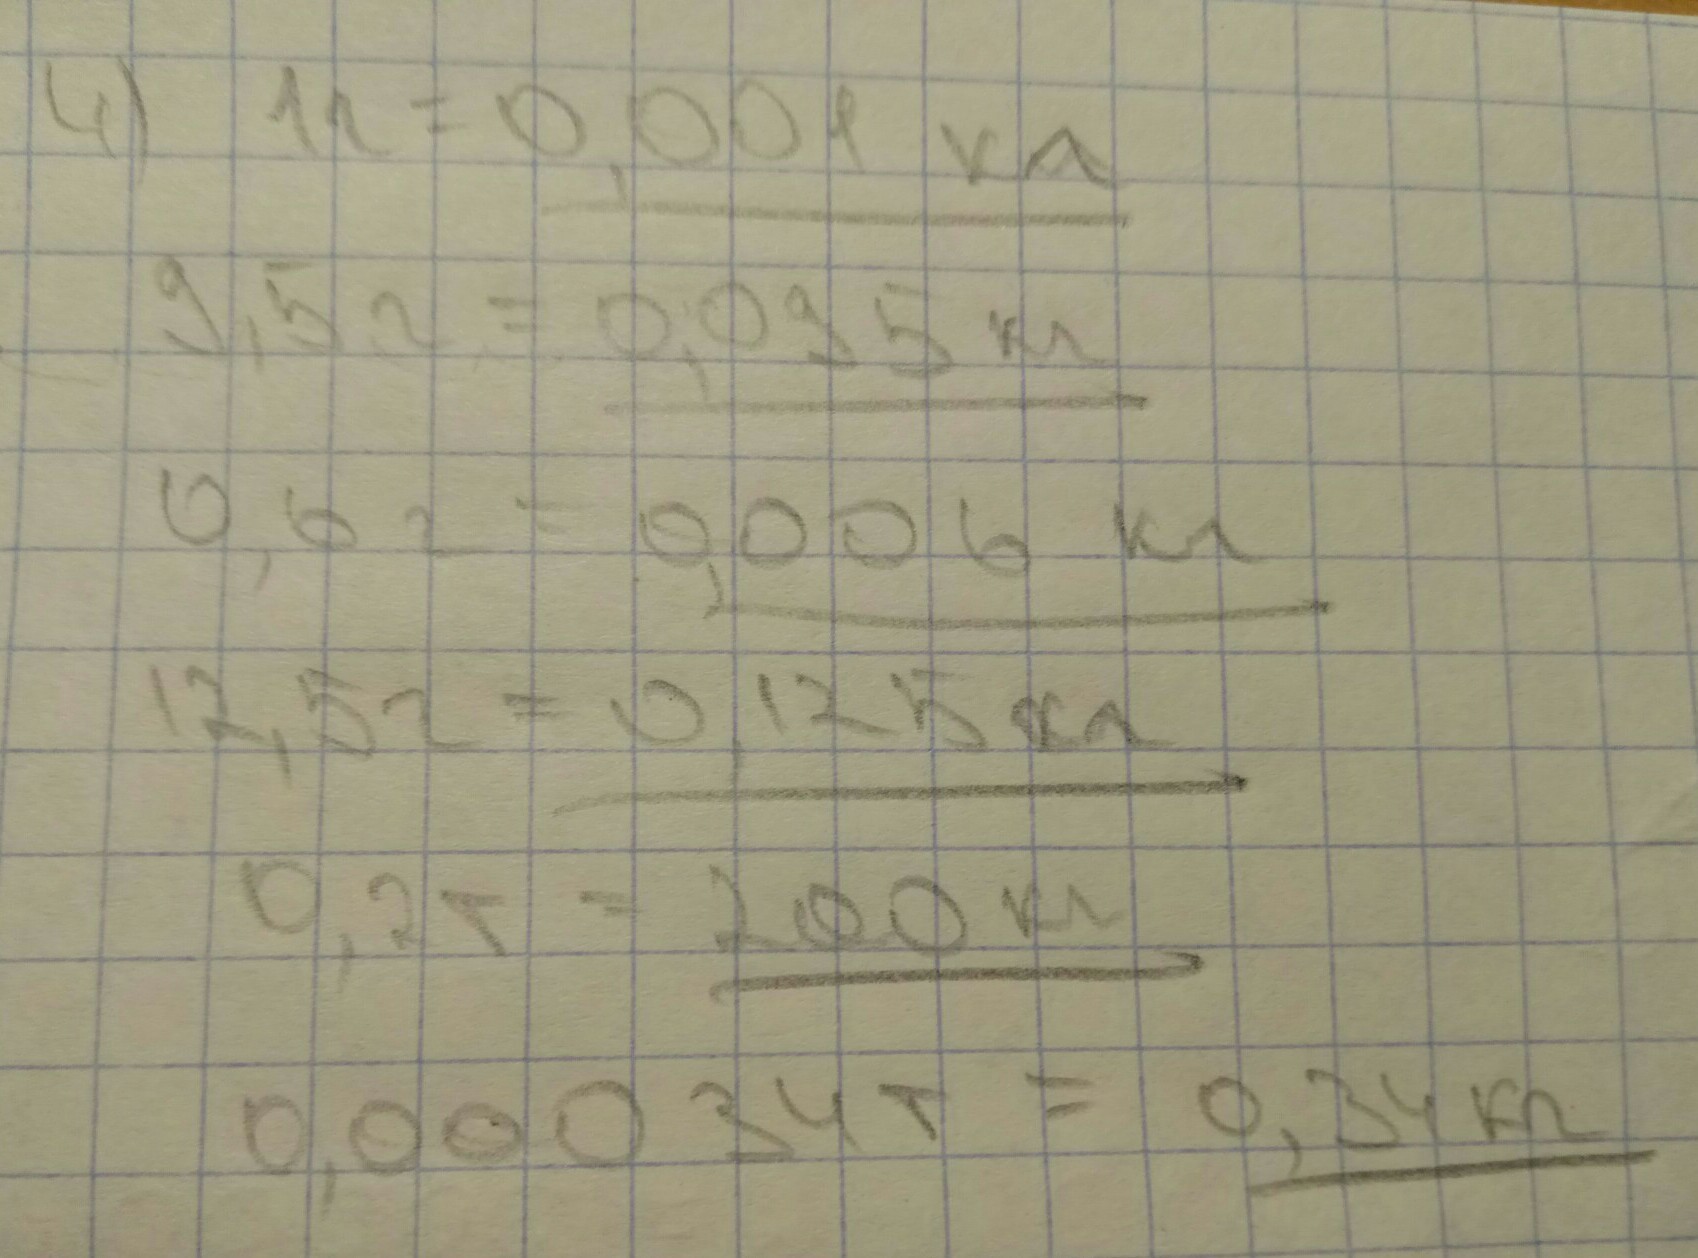 4) 1г = 0,001 кг
9,5г = 0,095 кг
0,6г = 0,006 кг
12,5г = 0,125 кг
0,2т = 200 кг
0,00034т = 0,34 кг